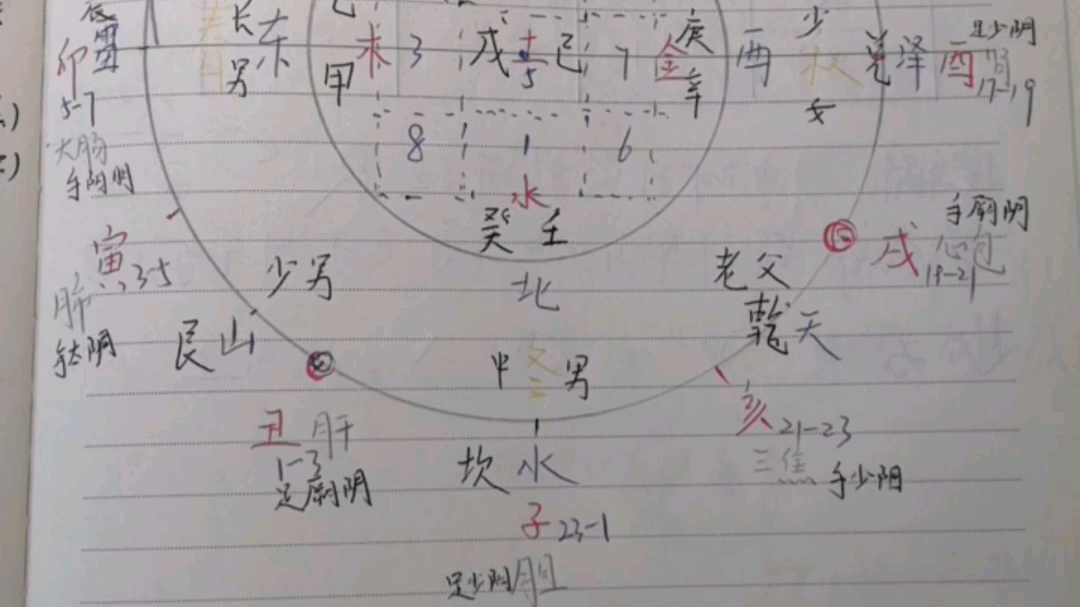 长 东 男
木 3 戊 土 5 己 7 金 庚 辛
甲
酉 少 女 兑 泽 酉 足少阴 肾 17-19
卯 5-7 大肠 手阳明
8 1 6
水
癸 壬
北
寅 3-5 肺
少男
艮山
老父
乾天
戌 19-21 心包 手厥阴
中 冬 男
丑 肝
1-3
足厥阴
坎 水
子 23-1
胆
亥 21-23
三焦 手少阳